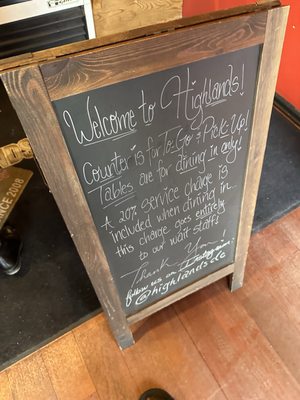 Welcome to Highlands!
Counter is for To-Go & Pick-Up!
Tables are for dining in only!
A 20% service charge is
included when dining in.
this charge goes entirely
to our wait staff!
Thank You!
follow us on Instagram
@highlandsdc
2009